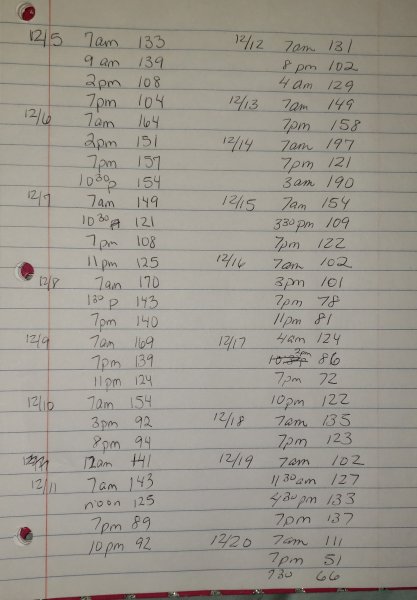 12/5 7am 133
9am 139
2pm 108
7pm 104
12/6 7am 164
2pm 151
7pm 157
1030p 154
12/7 7am 149
1030 121
7pm 108
11pm 125
12/8 7am 170
130p 143
7pm 140
12/9 7am 169
7pm 139
11pm 124
12/10 7am 154
3pm 92
8pm 94
12am 141
12/11 7am 143
noon 125
7pm 89
10pm 92
12/12 7am 131
8pm 102
4am 129
12/13 7am 149
7pm 158
12/14 7am 197
7pm 121
3am 190
12/15 7am 154
330pm 109
7pm 122
12/16 7am 102
3pm 101
7pm 78
11pm 81
12/17 4am 124
3pm 86
7pm 72
10pm 122
12/18 7am 135
7pm 123
12/19 7am 102
1130am 127
430pm 133
7pm 137
12/20 7am 111
7pm 51
730 66